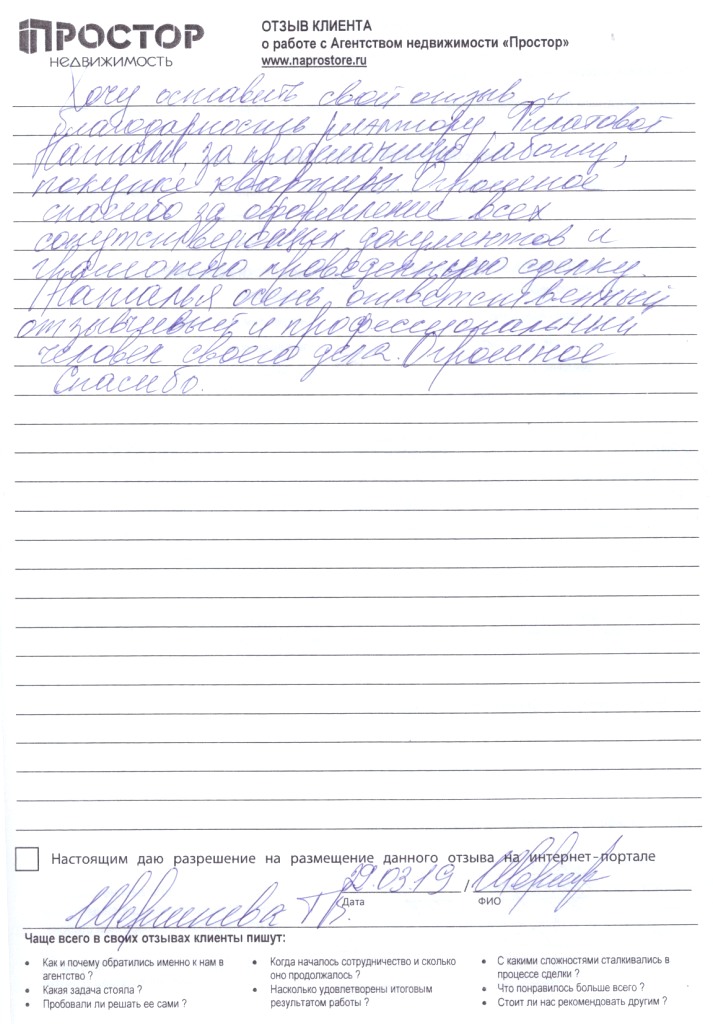 ПРОСТОР
НЕДВИЖИМОСТЬ
ОТЗЫВ КЛИЕНТА
о работе с Агентством недвижимости «Простор»
www.naprostore.ru
Хочу оставить свой отзыв и
благодарность риэлтору Филатовой
Наталье, за проделанную работу,
покупке квартиры. Огромное
спасибо за оформление всех
сопутствующих документов и
грамотно проведенную сделку.
Наталья очень ответственный
отзывчивый и профессиональный
человек своего дела. Огромное
Спасибо.
Настоящим даю разрешение на размещение данного отзыва на интернет-портале
29.03.19,
Дата
ФИО
Чаще всего в своих отзывах клиенты пишут:
• Как и почему обратились именно к нам в
агентство ?
• Какая задача стояла ?
• Пробовали ли решать ее сами ?
• Когда началось сотрудничество и сколько
оно продолжалось ?
• Насколько удовлетворены итоговым
результатом работы ?
• С какими сложностями сталкивались в
процессе сделки ?
• Что понравилось больше всего ?
• Стоит ли нас рекомендовать другим ?